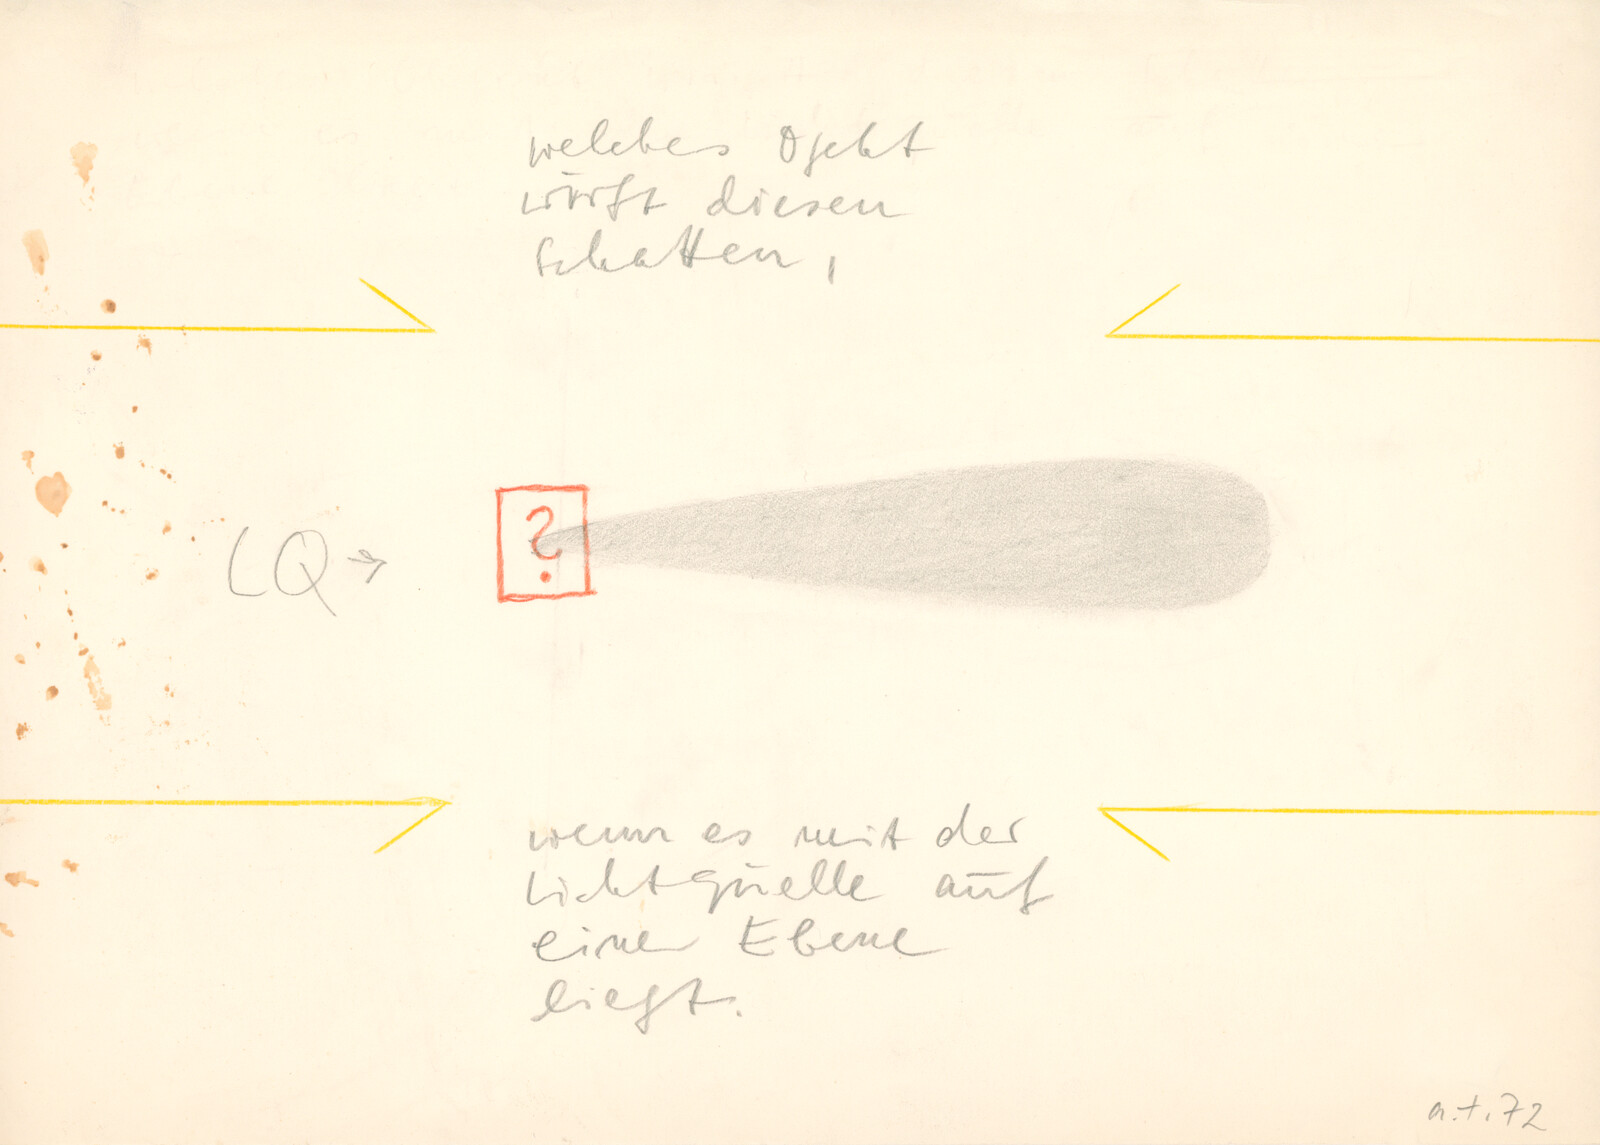 welches Ojekt
wirft diesen
Schatten,
?
LQ →
wenn es mit der
Lichtquelle auf
einer Ebene
liegt.
a.t.72